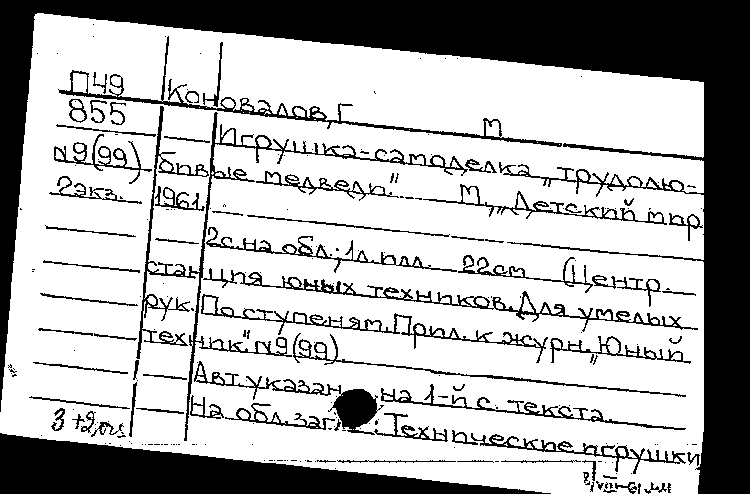 П49 Коновалов, Г М
855 Игрушка-самоделка „трудолю-
N9(99) бивые медведи." М., „Детский мир
2экз. 1961.
2с. на обл.; 1л. илл. 22см (Центр.
станция юных техников. Для умелых
рук. По ступеням. Прил. к журн. „Юный
техник." N9(99).
Авт. указан на 1-й с. текста.
На обл. загл.: Технические игрушки
3+2